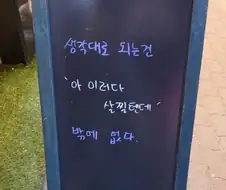 생각대로 되는건
'아 이러다
살찔텐데'
밖에 없다.